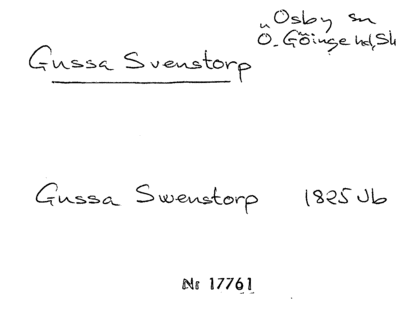 Osby sn
Ö. Göinge hd, Sk
Gussa Svenstorp
Gussa Swenstorp 1825 Jb
Nr 17761